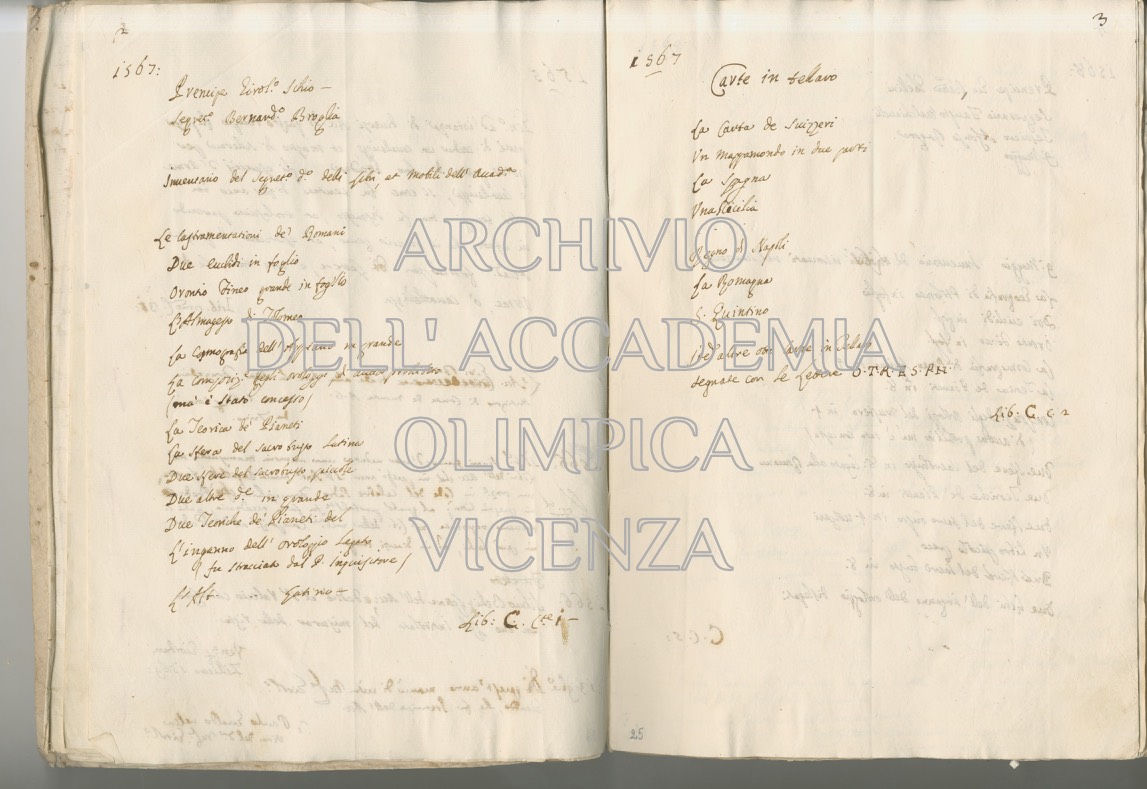 2
1567:
Prencipe Girol.º Schio –
Segret.º Bernard.º Broglia
Inventario del Segret.º d.º delli libri, et mobili dell' Accad.ª
Le Castramentationi de' Romani
Due Euclidi in foglio
Orontio Fineo grande in foglio
L'Almagesto di Tolomeo
La Cosmografia dell' Appiano in grande
La degli orologgi
(ma è stato concesso)
La Teorica de' Pianeti
La Sfera del Sacrobusto Latina
Due Sfere del Sacrobusto piccole
Due altre d.e in grande
Due Teoriche de' Pianeti del
L'inganno dell' Orologgio Legato
fu stracciato dal P. Inquisitore)
Latino –
Lib: C. C.te 1 –
3
1567
Carte in tellaro
La Carta de Suizzeri
Un Mappamondo in due parti
La Spagna
Una Sicilia
Regno di Napoli
La Romagna
S. Quintino
altre otto Carte in
segnate con le Lettere O.T.R.E.S.P.H.
Lib: C. c. 2
25
ARCHIVIO
DELL'ACCADEMIA
OLIMPICA
VICENZA